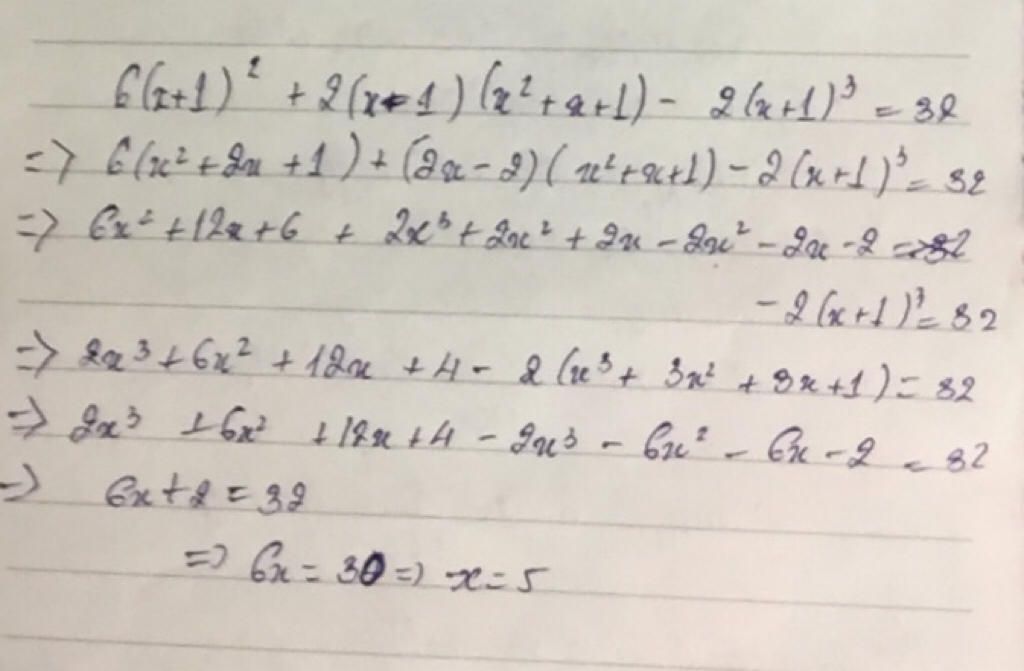 6(x+1)² + 2(x-1)(x²+x+1) - 2(x+1)³ = 32
=> 6(x²+2x+1) + (2x-2)(x²+x+1) - 2(x+1)³ = 32
=> 6x²+12x+6 + 2x³+2x²+2x-2x²-2x-2
-2(x+1)³ = 32
=> 2x³+6x²+12x+4 - 2(x³+3x²+3x+1) = 32
=> 2x³+6x²+12x+4-2x³-6x²-6x-2 = 32
=> 6x+2 = 32
=> 6x = 30 => x = 5